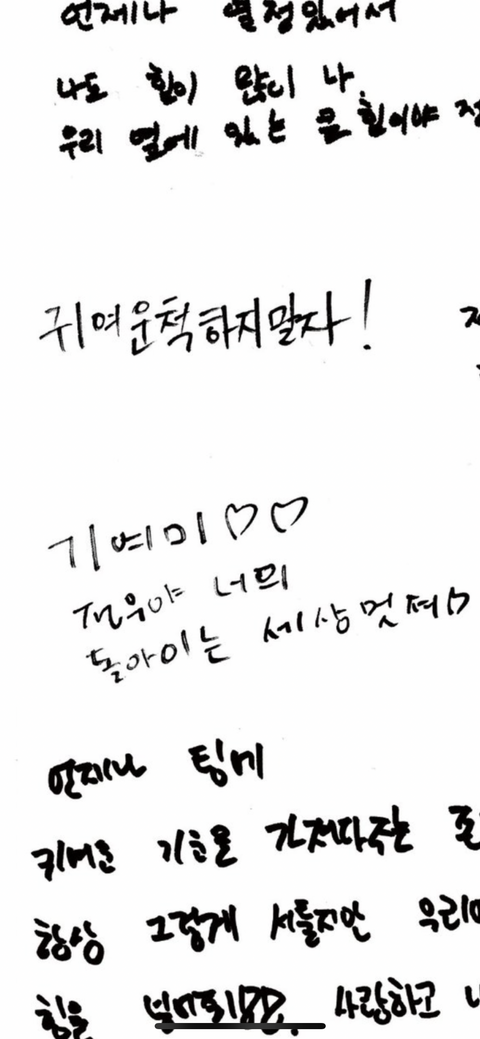 언제나 열정있어서
나도 힘이 많이 나.
우리 옆에 있는 큰 힘이야
귀여운척하지말자!
기여미♡♡
전우야 너의
돌아이는 세상멋져♡
언제나 팀에
귀여운 기운을 가져다주는
항상 그렇게 서툴지만
힘을 사랑하고